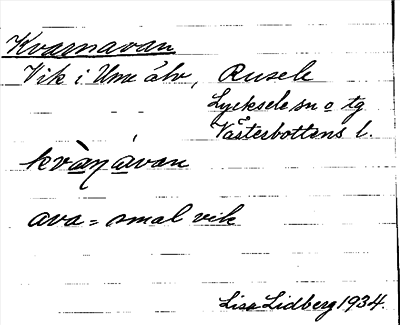 Kvarnavan
Vik i Ume älv, Rusele
Lycksele sn o tg
Västerbottens l.
kvà̀ṇávan
ava = smal vik
Lisa Lidberg 1934.